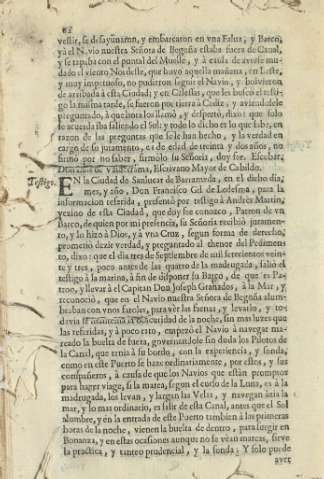 62
vestir, se desayunaron, y embarcaron en una Falua, y Barco,
yà el Navio nuestra Señora de Begoña estaba fuera de Canal,
y se tapaba con el puntal del Muelle, y à causa de averse mu-
dado el viento Nordeste, que huvo aquella mañana, en Leste,
y muy impetuoso, no pudieron seguir el Navio, y bolvieron
de arribada à esta Ciudad; y en Calessas, que les buscò el testi-
go la misma tarde, se fueron por tierra à Cadiz, y aviendole
preguntado, à que hora los llamò, y despertò, dixo: que solo
se acuerda iba saliendo el Sol; y todo lo dicho es lo que sabe, en
razon de las preguntas que se le han hecho, y la verdad en
cargo de su juramento, es de edad de treinta y dos años, no
firmò por no saber, firmòlo su Señoria, doy fee. Escobar.
Escrivano Mayor de Cabildo.
Testigo. EN la Ciudad de Sanlucar de Barrameda, en el dicho dia,
mes, y año, Don Francisco Gil de Ledesma, para la
informacion referida, presentò por testigo à Andrès Martin,
vezino de esta Ciudad, que doy fee conozco, Patron de un
Barco, de quien por mi presencia, su Señoria recibiò juramen-
to, y lo hizo à Dios, y à una Cruz, segun forma de derecho,
prometiò dezir verdad, y preguntado al thenor del Pedimen-
to, dixo: que el dia tres de Septiembre de mil setecientos vein-
te y tres, poco antes de las quatro de la madrugada, saliò el
testigo à la marina, à fin de disponer su Barco, de que es Pa-
tron, y llevar à el Capitan Don Joseph Granados, à la Mar, y
reconociò, que en el Navio nuestra Señora de Begoña alum-
braban con unos faroles, para vèr las faenas, y levarlo, y to-
davia se mantenia la obscuridad de la noche, sin mas luces que
las referidas, y à poco rato, empezò el Navio à navegar ma-
reado la buelta de fuera, governandole sin duda los Pilotos de
la Canal, que tenia à su bordo, con la experiencia, y sonda,
como en este Puerto se haze ordinariamente, por estos, y sus
compañeros, à causa de que los Navios que estàn promptos
para hazer viage, si la marea, segun el curso de la Luna, es à la
madrugada, los levan, y largan las Velas, y navegan àzia la
mar, y lo mas ordinario, es salir de esta Canal, antes que el Sol
alumbre, y en la entrada de este Puerto tambien à las primeras
horas de la noche, vienen la buelta de dentro, para surgir en
Bonanza, y en estas ocasiones aunque no se vèan marcas, sirve
la practica, y tanteo prudencial, y la sonda; Y solo puede
aver